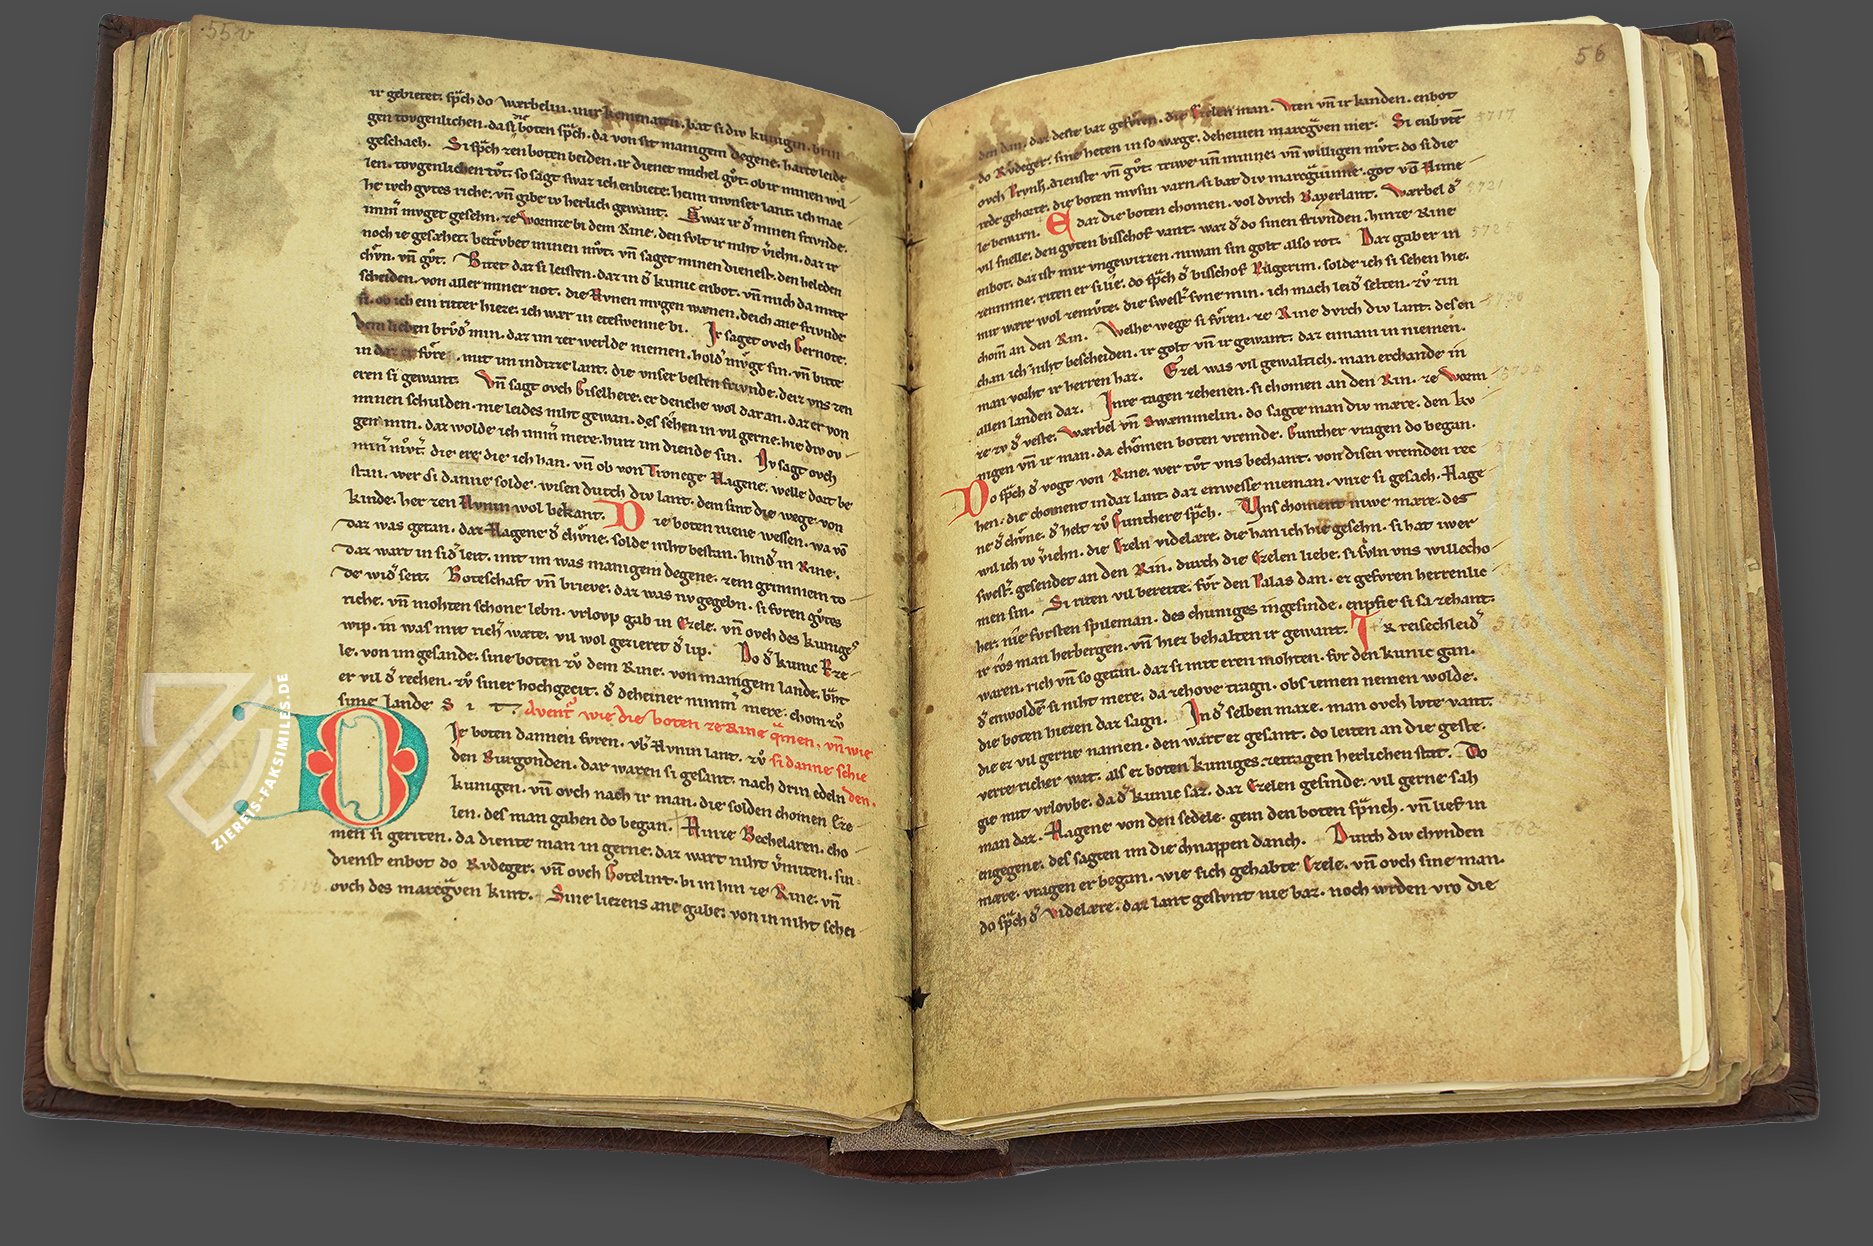 55v
ir gebietet. sp̃ch do Wærbelin. zuir kemenaten. bat si diw kunigin. brin
gen tovgenlichen. da si boten sp̃ch. da von sit manigem degene. harte leide
geschach. Si sp̃ch zen boten beiden. ir dienet michel gv̊t. ob ir minen wil
len. tovgenlichen tv̊t. so sagt swaz ich enbiete. heim in vnser lant. ich mac
he iwch gvtes riche. vñ gibe iv herlich gewant. Swaz ir d̾ minen frivnde.
imm̃ mvget gesehn. ze Wormze bi dem Rine. den svlt ir niht v̾iehn. daz ir
noch ie gesæhet. betrv̊bet minen mv̊t. vñ saget minen dienest. den heleden
chv̊n. vñ gv̊t. Bitet daz si leisten. daz in d̾ kunic enbot. vñ mich da mite
scheiden. von aller miner not. die Hvnen mvgen wænen. deich ane frivnde
si. ob ich ein ritter hieze. ich wær in eteswenne bi. Ir saget ovch Gernote.
dem lieben brv̊d̾ min. daz im zer werlde niemen. hold̾ mv̊ge sin. vñ bitte
in daz er fv̊re. mit im in dizze lant. die vnser besten frivnde. deiz vns zen
eren si gewant. Vñ sagt ovch Giselhere. er denche wol daran. daz er von
minen schulden. nie leides niht gewan. des sehen in vil gerne. hie diw ov
gen min. daz wolde ich imm̃ mere. hinz im diende sin. Iv sagt ovch
min̾ mv̊t̾. die ere die ich han. vñ ob von Tronege Hagene. welle dort be
stan. wer si danne solde. wisen durch diw lant. dem sint die wege von
kinde. her zen Hvnin wol bekant. Die boten niene wessen. wa vō
daz was getan. daz Hagene d̾ chv̊ne. solde niht bestan. hind̾ in Rine.
daz wart in sid̾ leit. mit im was manigem degene. zem grimmem to
de wid̾ seit. Boteschaft vñ brieve. daz was nv gegebn. si fvren gv̊tes
riche. vñ mohten schone lebn. vrlovp gab in Ezele. vñ ovch des kuniges
wip. in was mit rich̾ wæte. vil wol gezieret d̾ lip. Do d̾ kunic Eze
le. von im gesande. sine boten zv̊ dem Rine. von manigem lande. bãt
er vil d̾ rechen. zv̊ siner hochgezit. d̾ deheiner nimm̃ mere. chom zv̊
sime lande S i t. Avent̾ wie die boten ze Rine q̊men. vñ wie
Die boten dannen fvren. vz Hvnin lant. zv̊ si danne schie
den Burgonden. daz waren si gesant. nach drin edeln den.
kunigen. vñ ovch nach ir man. die solden chomen Eze
len. des man gahen do began. Hinze Bechelaren. cho
men si geriten. da diente man in gerne. daz wart niht v̾miten. sin
dienst enbot do Rvdeger. vñ ovch Gotelint. bi in hin ze Rine. vñ
ovch des marcg̊ven kint. Sine liezens ane gabe. von in niht schei
56
den dan. daz deste baz gefv̊ren. die Ezelen man. Vten vñ ir kinden. enbot
do Rvdeger. sine heten in so wæge. deheinen marcg̊ven mer. Si enbvte
ovch Prvnh. dienste vñ gv̊t. triwe vñ minne. vñ willigen mv̊t. do si die
rede gehorte. die boten mvsin varn. si bat diw marcg̊vinne. got vō Hime
le bewarn. E daz die boten chomen. vol durch Bayerlant. Wærbel d̾
vil snelle. den gvten bisschof vant. waz d̾ do sinen frivnden. hinze Rine
enbot. daz ist mir vngewizzen. niwan sin golt also rot. Daz gab er in
zeminne. riten er si lie. do sp̃ch d̾ bisschof Pilgerim. solde ich si sehen hie.
mir wære wol zemv̊te. die swest̾ svne min. ich mach leid̾ selten. zv̊ zin
chom̃ an den Rin. Welhe wege si fv̊ren. ze Rine durch diw lant. des en
chan ich niht bescheiden. ir golt vñ ir gewant. daz ennam in niemen.
man vorht ir herren haz. Ezel was vil gewaltich. man erchande in
allen landen daz. Inre tagen zehenen. si chomen an den Rin. ze Worm
ze zv̊ d̾ veste. Wærbel vñ Swæmmelin. do sagte man diw mære. den kv
nigen vñ ir man. da chomen boten vremde. Gunther vragen do began.
Do sp̃ch d̾ vogt von Rine. wer tv̊t vns bechant. von disen vremden rec
hen. die choment in daz lant. daz enwesse nieman. vnze si gesach. Hage
ne d̾ chv̊ne. d̾ helt zv̊ Gunthere sp̃ch. Uns choment niwe mære. des
wil ich iv v̾iehn. die Ezeln videlære. die han ich hie gesehn. si hat iwer
swest̾. gesendet an den Rin. durch die Ezelen liebe. si svln vns willecho
men sin. Si riten vil bereite. fv̊r den Palas dan. ez gefvren herrenlic
her. nie fvrsten spileman. des chuniges ingesinde. enpfie si sa zehant.
ir ros man herbergen. vñ hiez behalten ir gewant. Ir reisechleid̾
waren. rich vñ so getan. daz si mit eren mohten. fvr den kunic gan.
d̾ enwolden si niht mere. da zehove tragn. obs iemen nemen wolde.
die boten hiezen daz sagn. In d̾ selben maze. man ovch lvte vant.
die ez vil gerne namen. den wart er gesant. do leiten an die geste.
verre richer wat. als ez boten kuniges. zetragen herlichen stat. Do
gie mit vrlovbe. da d̾ kunic saz. daz Ezelen gesinde. vil gerne sah
man daz. Hagene von den sedele. gein den boten sp̃nch. vñ lief in
engegene. des sagten im die chnappen danch. Durch diw chvnden
mære. vragen er began. wie sich gehabte Ezele. vñ ovch sine man.
do sp̃ch d̾ videlære. daz lant gestvnt nie baz. noch wrden vro die
ZIEREIS-FAKSIMILES.DE